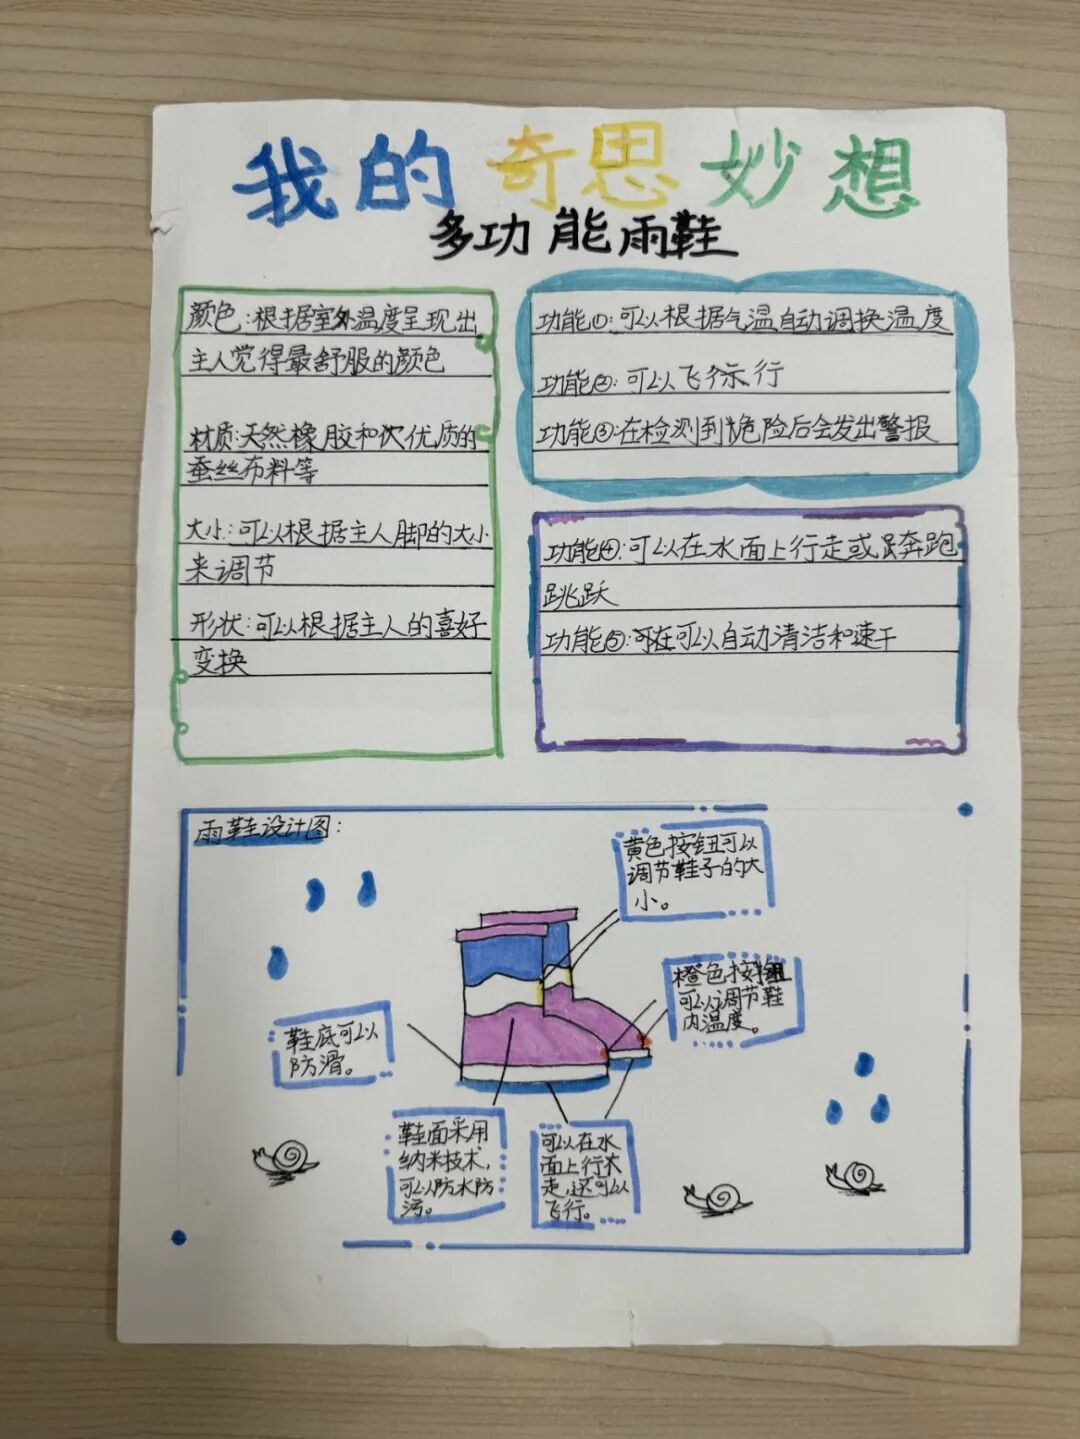 我的奇思妙想
多功能雨鞋
颜色:根据室外温度呈现出
主人觉得最舒服的颜色
材质:天然橡胶和次优质的
蚕丝布料等
大小:可以根据主人脚的大小
来调节
形状:可以根据主人的喜好
变换
功能①:可以根据气温自动调换温度
功能②:可以飞行
功能③:在检测到危险后会发出警报
功能④:可以在水面上行走或奔跑
跳跃
功能⑤:可以自动清洁和速干
雨鞋设计图:
黄色按钮可以
调节鞋子的大
小。
橙色按钮
可以调节鞋
内温度。
鞋底可以
防滑。
鞋面采用
纳米技术,
可以防水防
污。
可以在水
面上行
走,还可以
飞行。